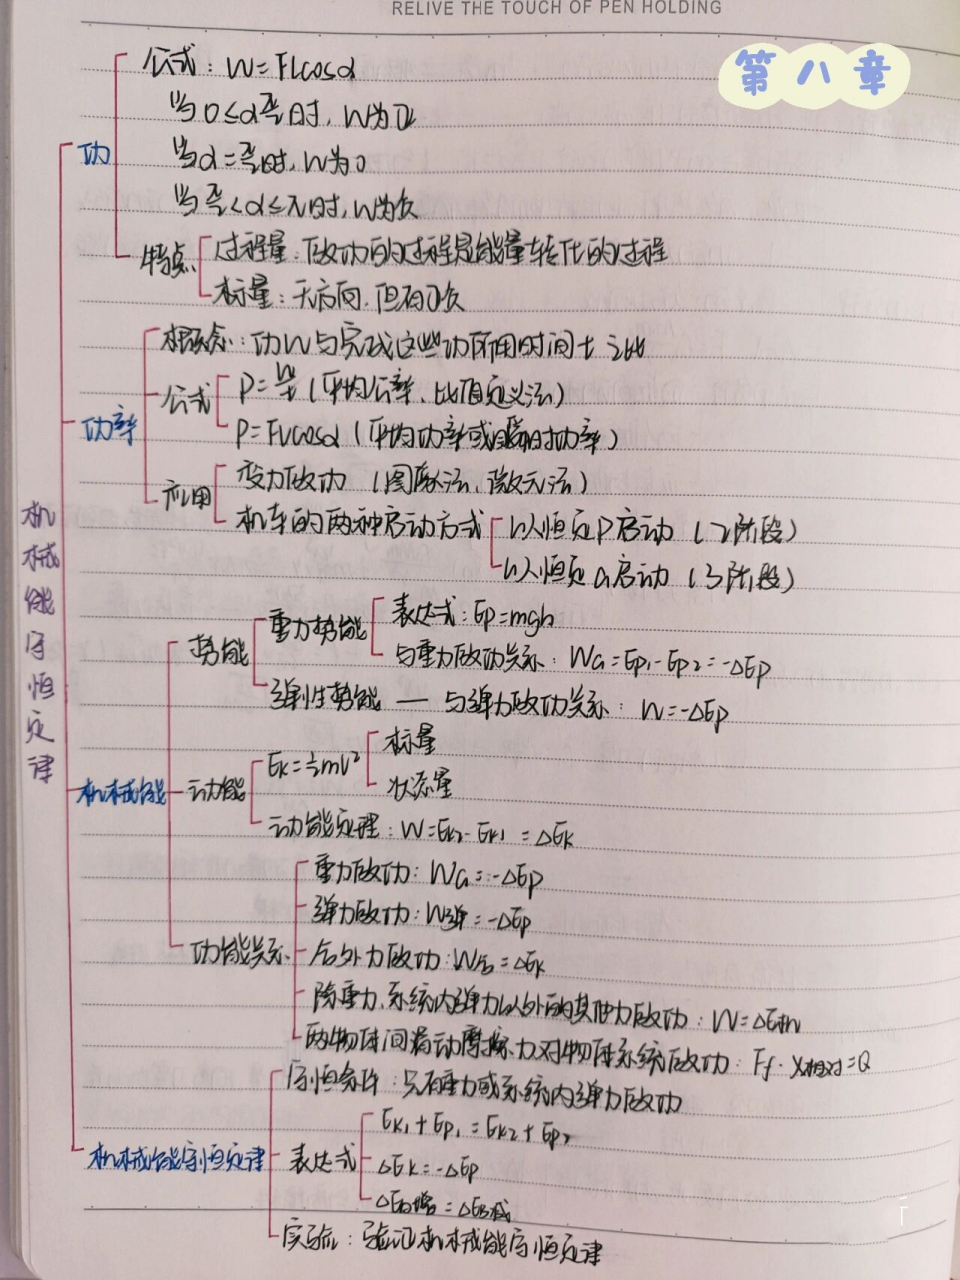 RELIVE THE TOUCH OF PEN HOLDING
第八章
公式：W=Flcosα
当0≤α<π/2时，W为正
当α=π/2时，W为0
功
当π/2<α≤π时，W为负
特点
过程量：做功的过程是能量转化的过程
标量：无方向，但有正负
概念：功W与完成这些功所用时间t之比
公式
P=W/t（平均公率、比值定义法）
功率
P=Fvcosα（平均功率或瞬时功率）
应用
变力做功（图像法、微元法）
机车的两种启动方式
以恒定P启动（2阶段）
以恒定a启动（3阶段）
机械能守恒定律
势能
重力势能
表达式：Ep=mgh
与重力做功关系：WG=Ep1-Ep2=-ΔEp
弹性势能 — 与弹力做功关系：W=-ΔEp
机械能
动能
Ek=½mv²
标量
状态量
动能定理：W=Ek2-Ek1=ΔEk
功能关系
重力做功：WG=-ΔEp
弹力做功：W弹=-ΔEp
合外力做功：W合=ΔEk
除重力、系统内弹力以外的其他力做功：W=ΔE机
两物体间滑动摩擦力对物体系统做功：Ff·x相对=Q
机械能守恒定律
守恒条件：只有重力或系统内弹力做功
表达式
Ek1+Ep1=Ek2+Ep2
ΔEk=-ΔEp
ΔEA增=ΔEB减
实验：验证机械能守恒定律